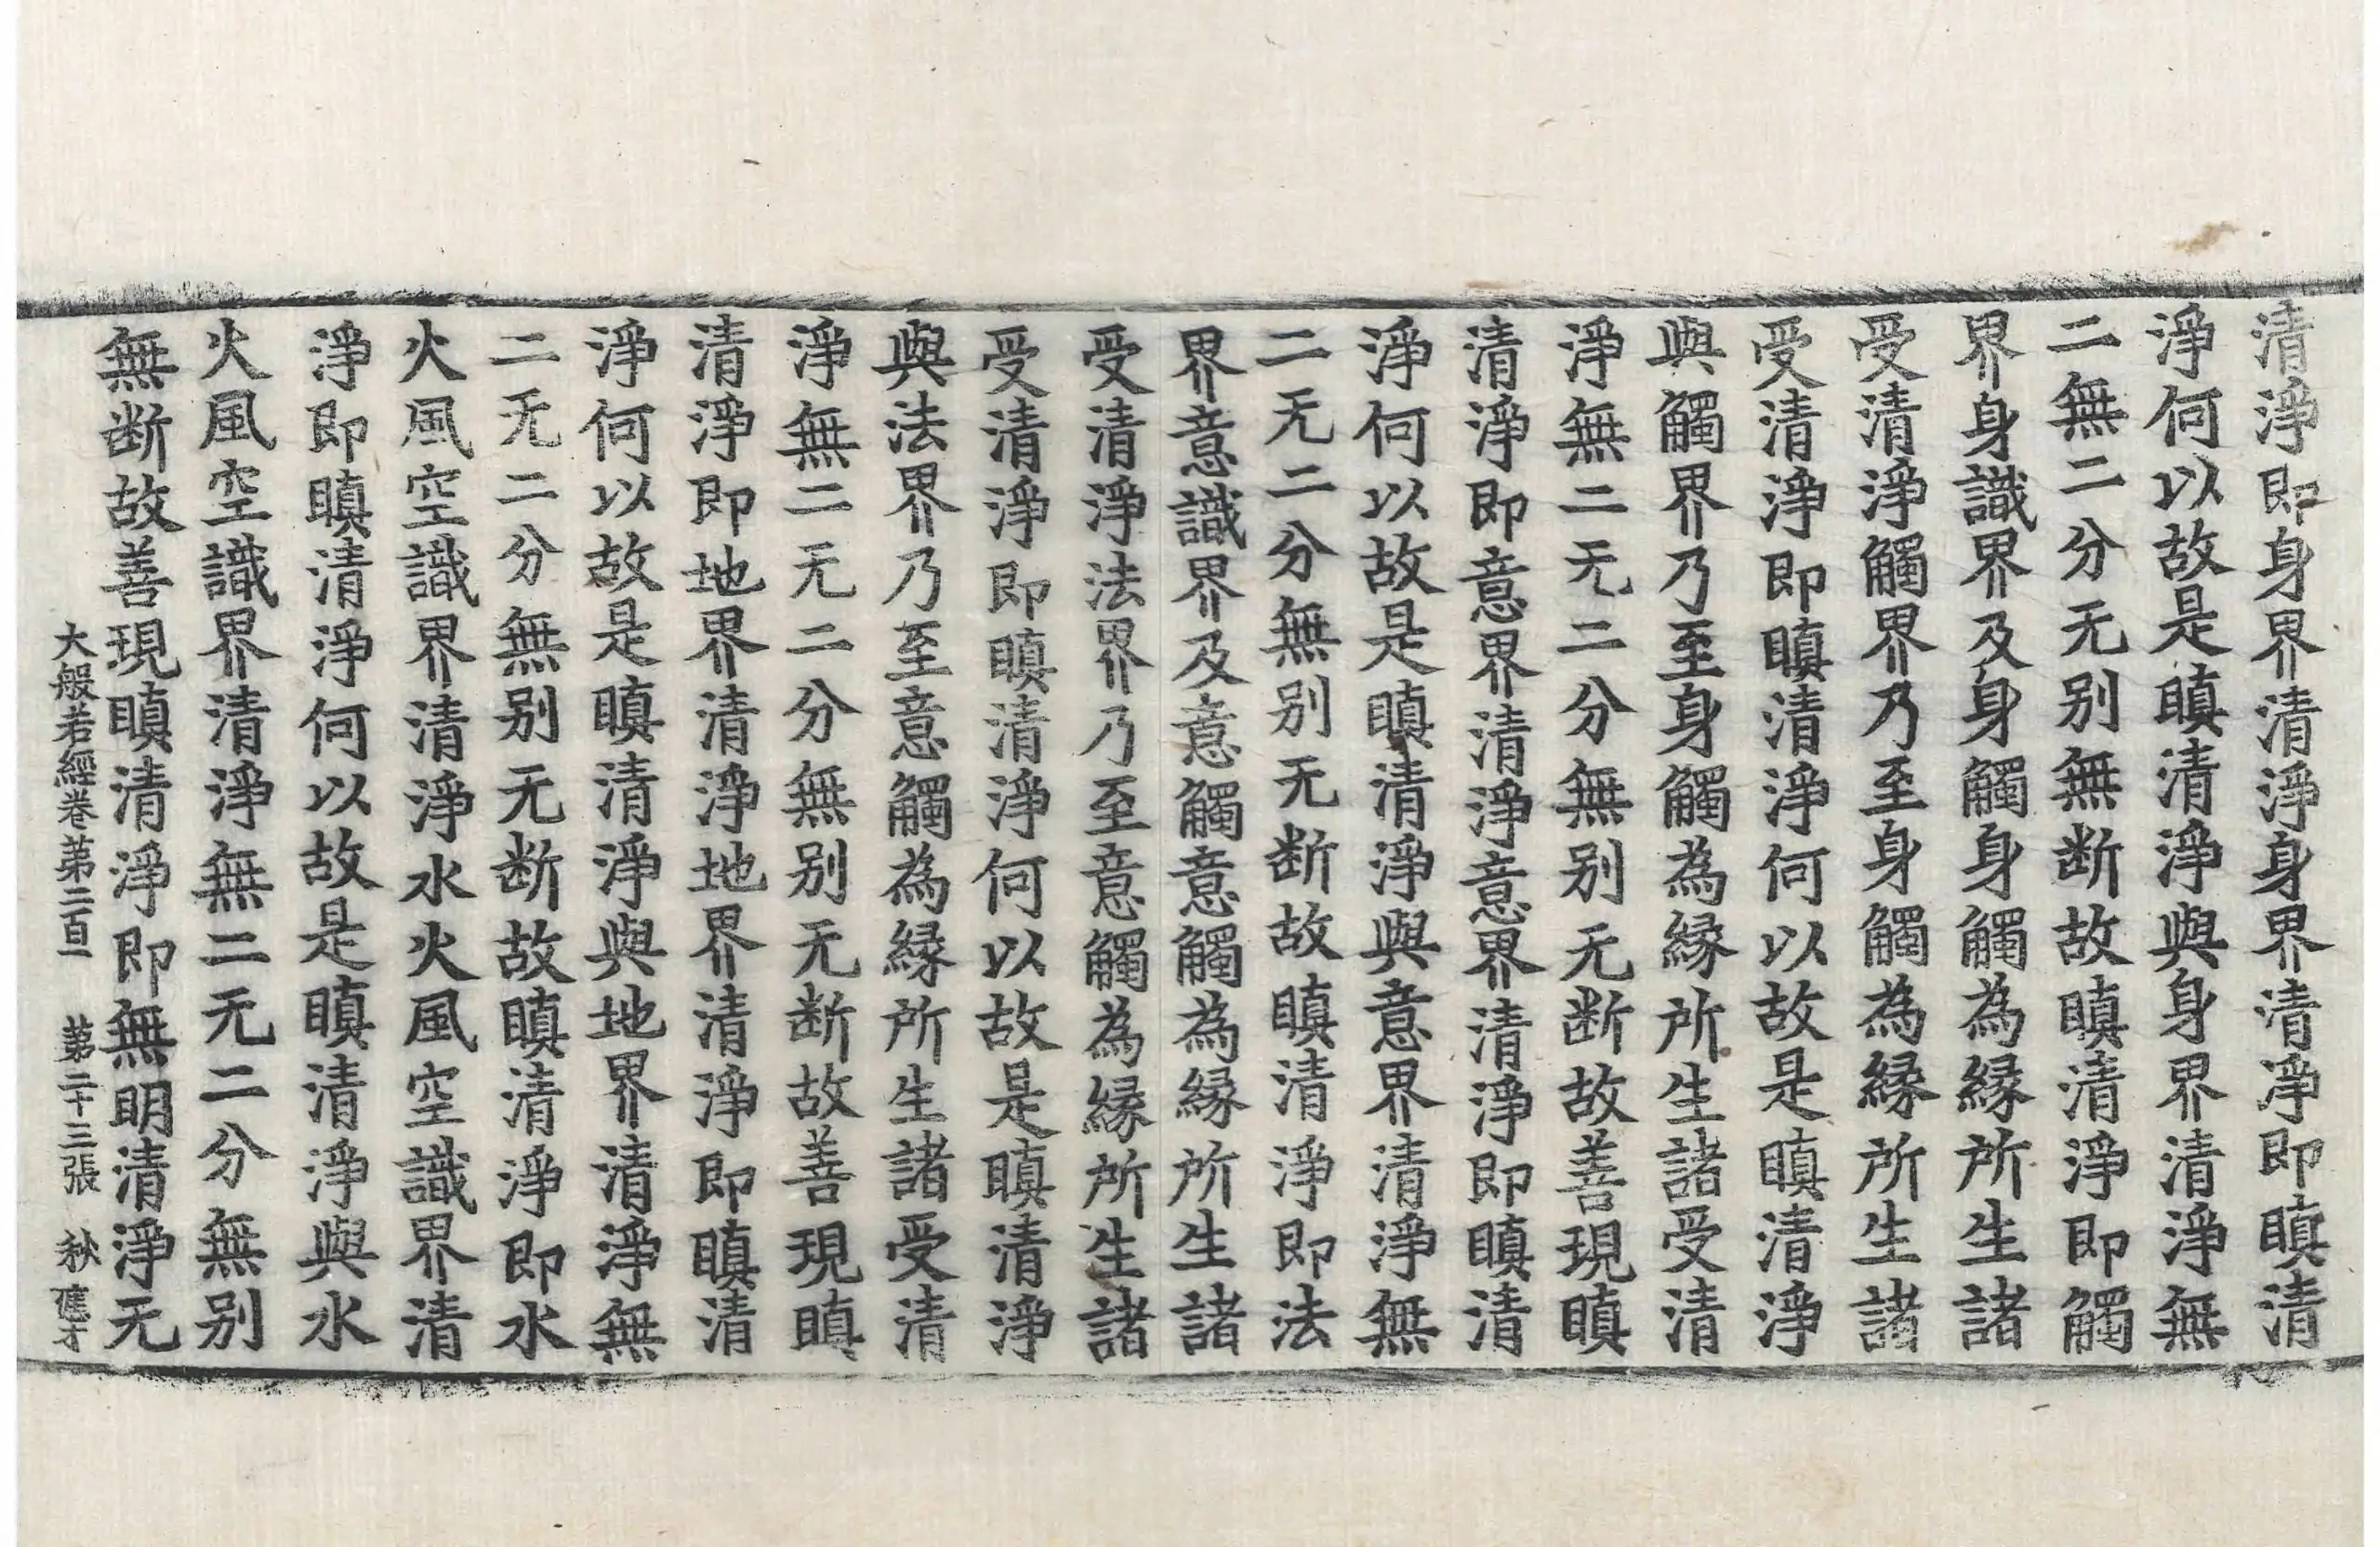 清淨即身界清淨身界清淨即瞋清
淨何以故是瞋清淨與身界清淨無
二無二分无别無断故瞋清淨即觸
界身識界及身觸身觸為縁所生諸
受清淨觸界乃至身觸為縁所生諸
受清淨即瞋清淨何以故是瞋清淨
與觸界乃至身觸為縁所生諸受清
淨無二无二分無别无断故善現瞋
清淨即意界清淨意界清淨即瞋清
淨何以故是瞋清淨與意界清淨無
二无二分無别无断故瞋清淨即法
界意識界及意觸意觸為縁所生諸
受清淨法界乃至意觸為縁所生諸
受清淨即瞋清淨何以故是瞋清淨
與法界乃至意觸為縁所生諸受清
淨無二无二分無别无断故善現瞋
清淨即地界清淨地界清淨即瞋清
淨何以故是瞋清淨與地界清淨無
二无二分無别无断故瞋清淨即水
火風空識界清淨水火風空識界清
淨即瞋清淨何以故是瞋清淨與水
火風空識界清淨無二无二分無别
無断故善現瞋清淨即無明清淨无
大般若經卷第二百一 第二十三張 秋